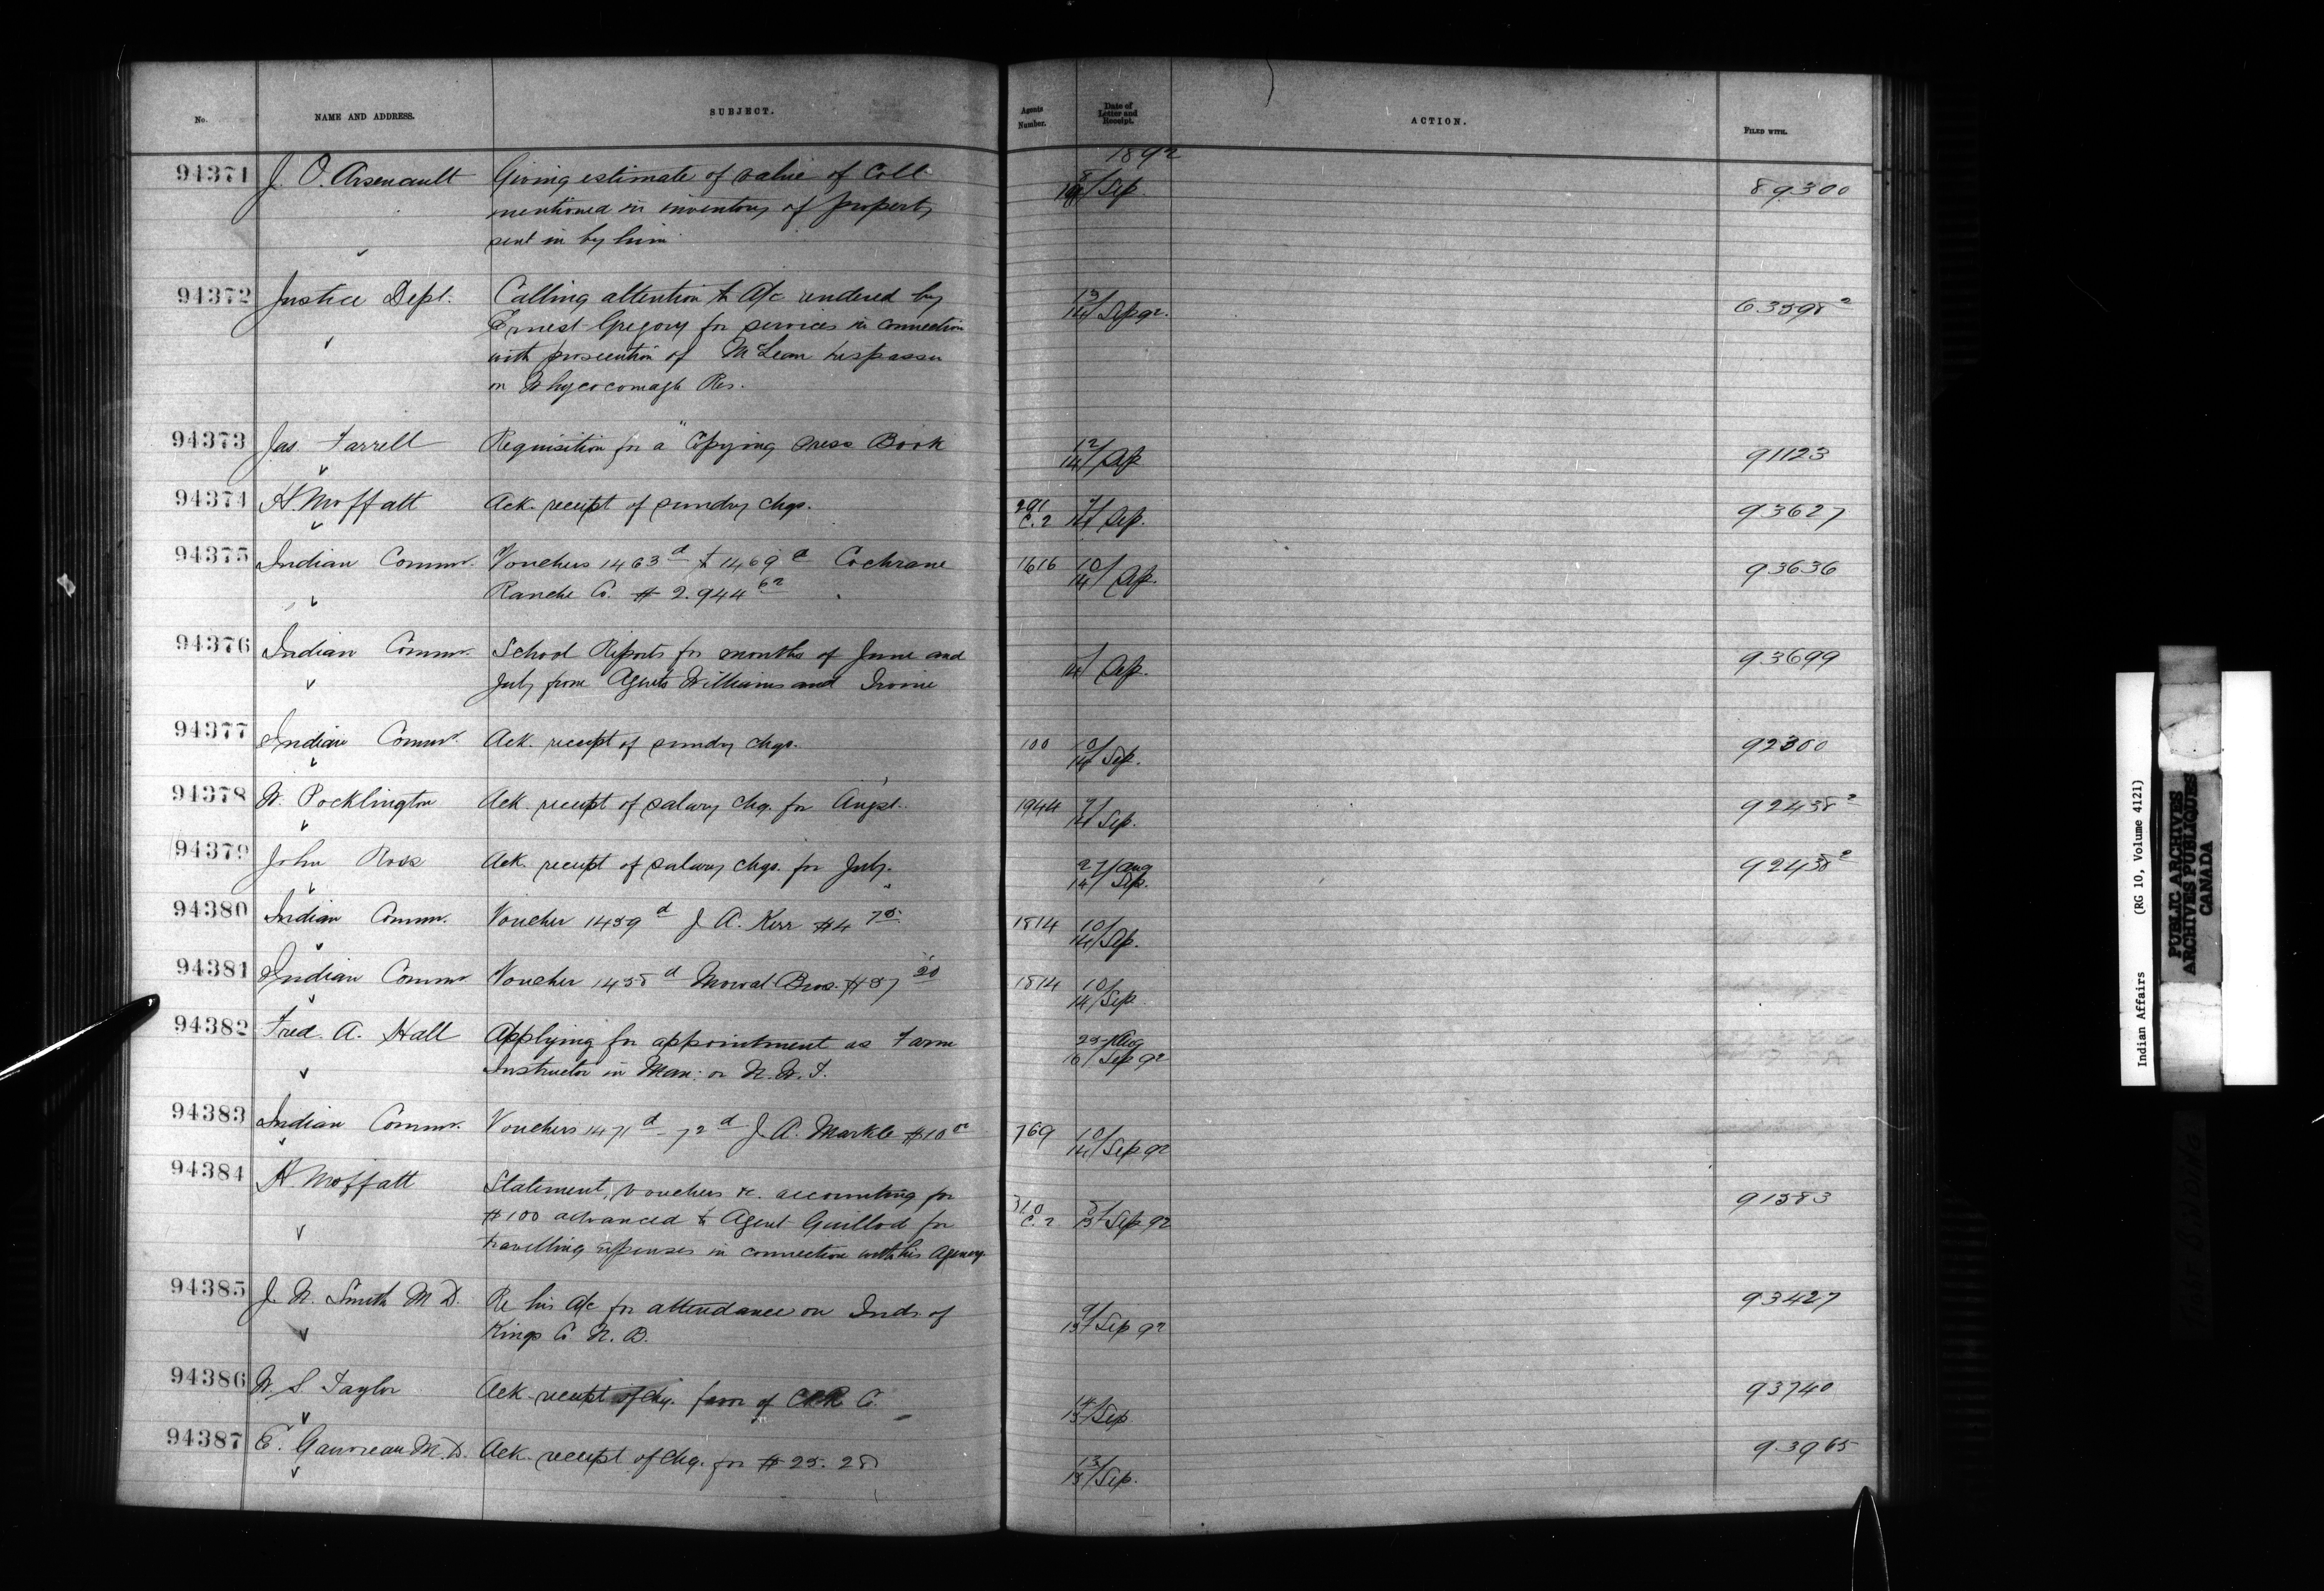 No. NAME AND ADDRESS. SUBJECT. Agents Number. Date of Letter and Receipt. ACTION. FILED WITH.
1892
94371 J. O. Arsenault Giving estimate of value of Coll 8/ 89300
mentioned in inventory of property Sep.
sent in by him
94372 Justice Dept. Calling attention to A/c rendered by 13/14 Sep 92. 63598²
Ernest Gregory for services in connection
with prosecution of McLean trespasser
on Whycocomagh Res.
94373 Jas. Farrell Requisition for a "Copying Press Book 12/14 Sep 91123
94374 H. Moffatt Ack. receipt of sundry chqs. 291 C.2 7/14 Sep. 93627
94375 Indian Commr. Vouchers 1463ᵈ & 1469ᵈ Cochrane 1616 10/14 Sep. 93636
Ranche Co. $2.944⁶²
94376 Indian Commr. School Reports for months of June and 14/ Sep. 93699
July from Agents Williams and Irvine
94377 Indian Commr. Ack. receipt of sundry chqs. 100 10/14 Sep. 92300
94378 W. Pocklington Ack. receipt of salary chq. for Augst. 1944 7/14 Sep. 92438²
94379 John Ross Ack. receipt of salary chqs. for July. 27/Aug 14/Sep. 92438²
94380 Indian Commr. Voucher 1459ᵈ J. A. Kerr $4 75 1814 10/14 Sep.
94381 Indian Commr Voucher 1458ᵈ Mowat Bros. $57 20 1814 10/14 Sep
94382 Fred. A. Hall Applying for appointment as Farm 29/Aug
Instructor in Man: or N.W.T. 16/Sep 92
94383 Indian Commr. Vouchers 1471ᵈ - 72ᵈ J. A. Markle $10 00 769 10/14 Sep 92
94384 H. Moffatt Statement, vouchers &c. accounting for 310 C.2 5/15 Sep 92 91583
$100 advanced to Agent Guillod for
travelling expenses in connection with his Agency
94385 J. N. Smith M.D. Re his A/c for attendance on Inds. of 9/15 Sep 92 93427
Kings Co N.B.
94386 W. S. Taylor Ack. receipt of chq. favor of CPR Co. 14/15 Sep 93740
94387 E. Gauvreau M.D. Ack. receipt of chq. for $25.25 13/15 Sep. 93965
Indian Affairs (RG 10, Volume 4121)
PUBLIC ARCHIVES
ARCHIVES PUBLIQUES
CANADA